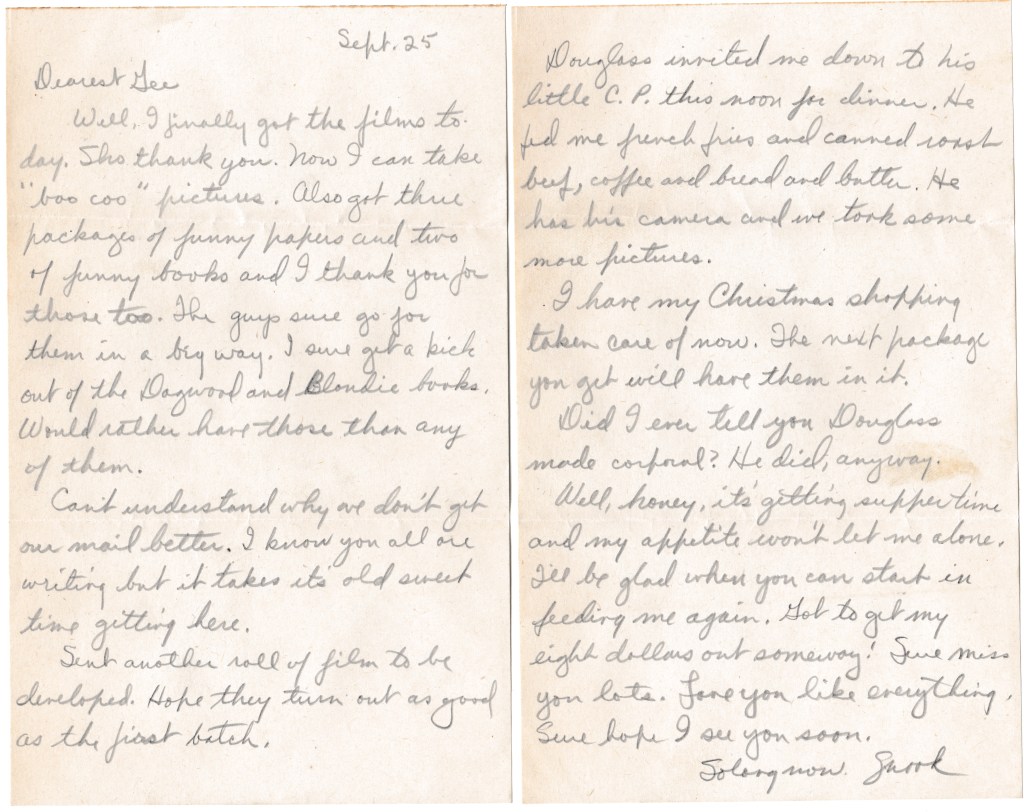 Sept. 25
Dearest Gee
Well, I finally got the films to-
day. Sho thank you. Now I can take
"boo coo" pictures. Also got three
packages of funny papers and two
of funny books and I thank you for
those too. The guys sure go for
them in a big way. I sure get a kick
out of the Dagwood and Blondie books.
Would rather have those than any
of them.
Can't understand why we don't get
our mail better. I know you all are
writing but it takes it's old sweet
time getting here.
Sent another roll of film to be
developed. Hope they turn out as good
as the first batch.
Douglass invited me down to his
little C. P. this noon for dinner. He
fed me french fries and canned roast
beef, coffee and bread and butter. He
has his camera and we took some
more pictures.
I have my Christmas shopping
taken care of now. The next package
you get will have them in it.
Did I ever tell you Douglass
made corporal? He did, anyway.
Well, honey, it's getting supper time
and my appetite won't let me alone.
I'll be glad when you can start in
feeding me again. Got to get my
eight dollars out someway! Sure miss
you lots. Love you like everything.
Sure hope I see you soon.
So long now. Snook